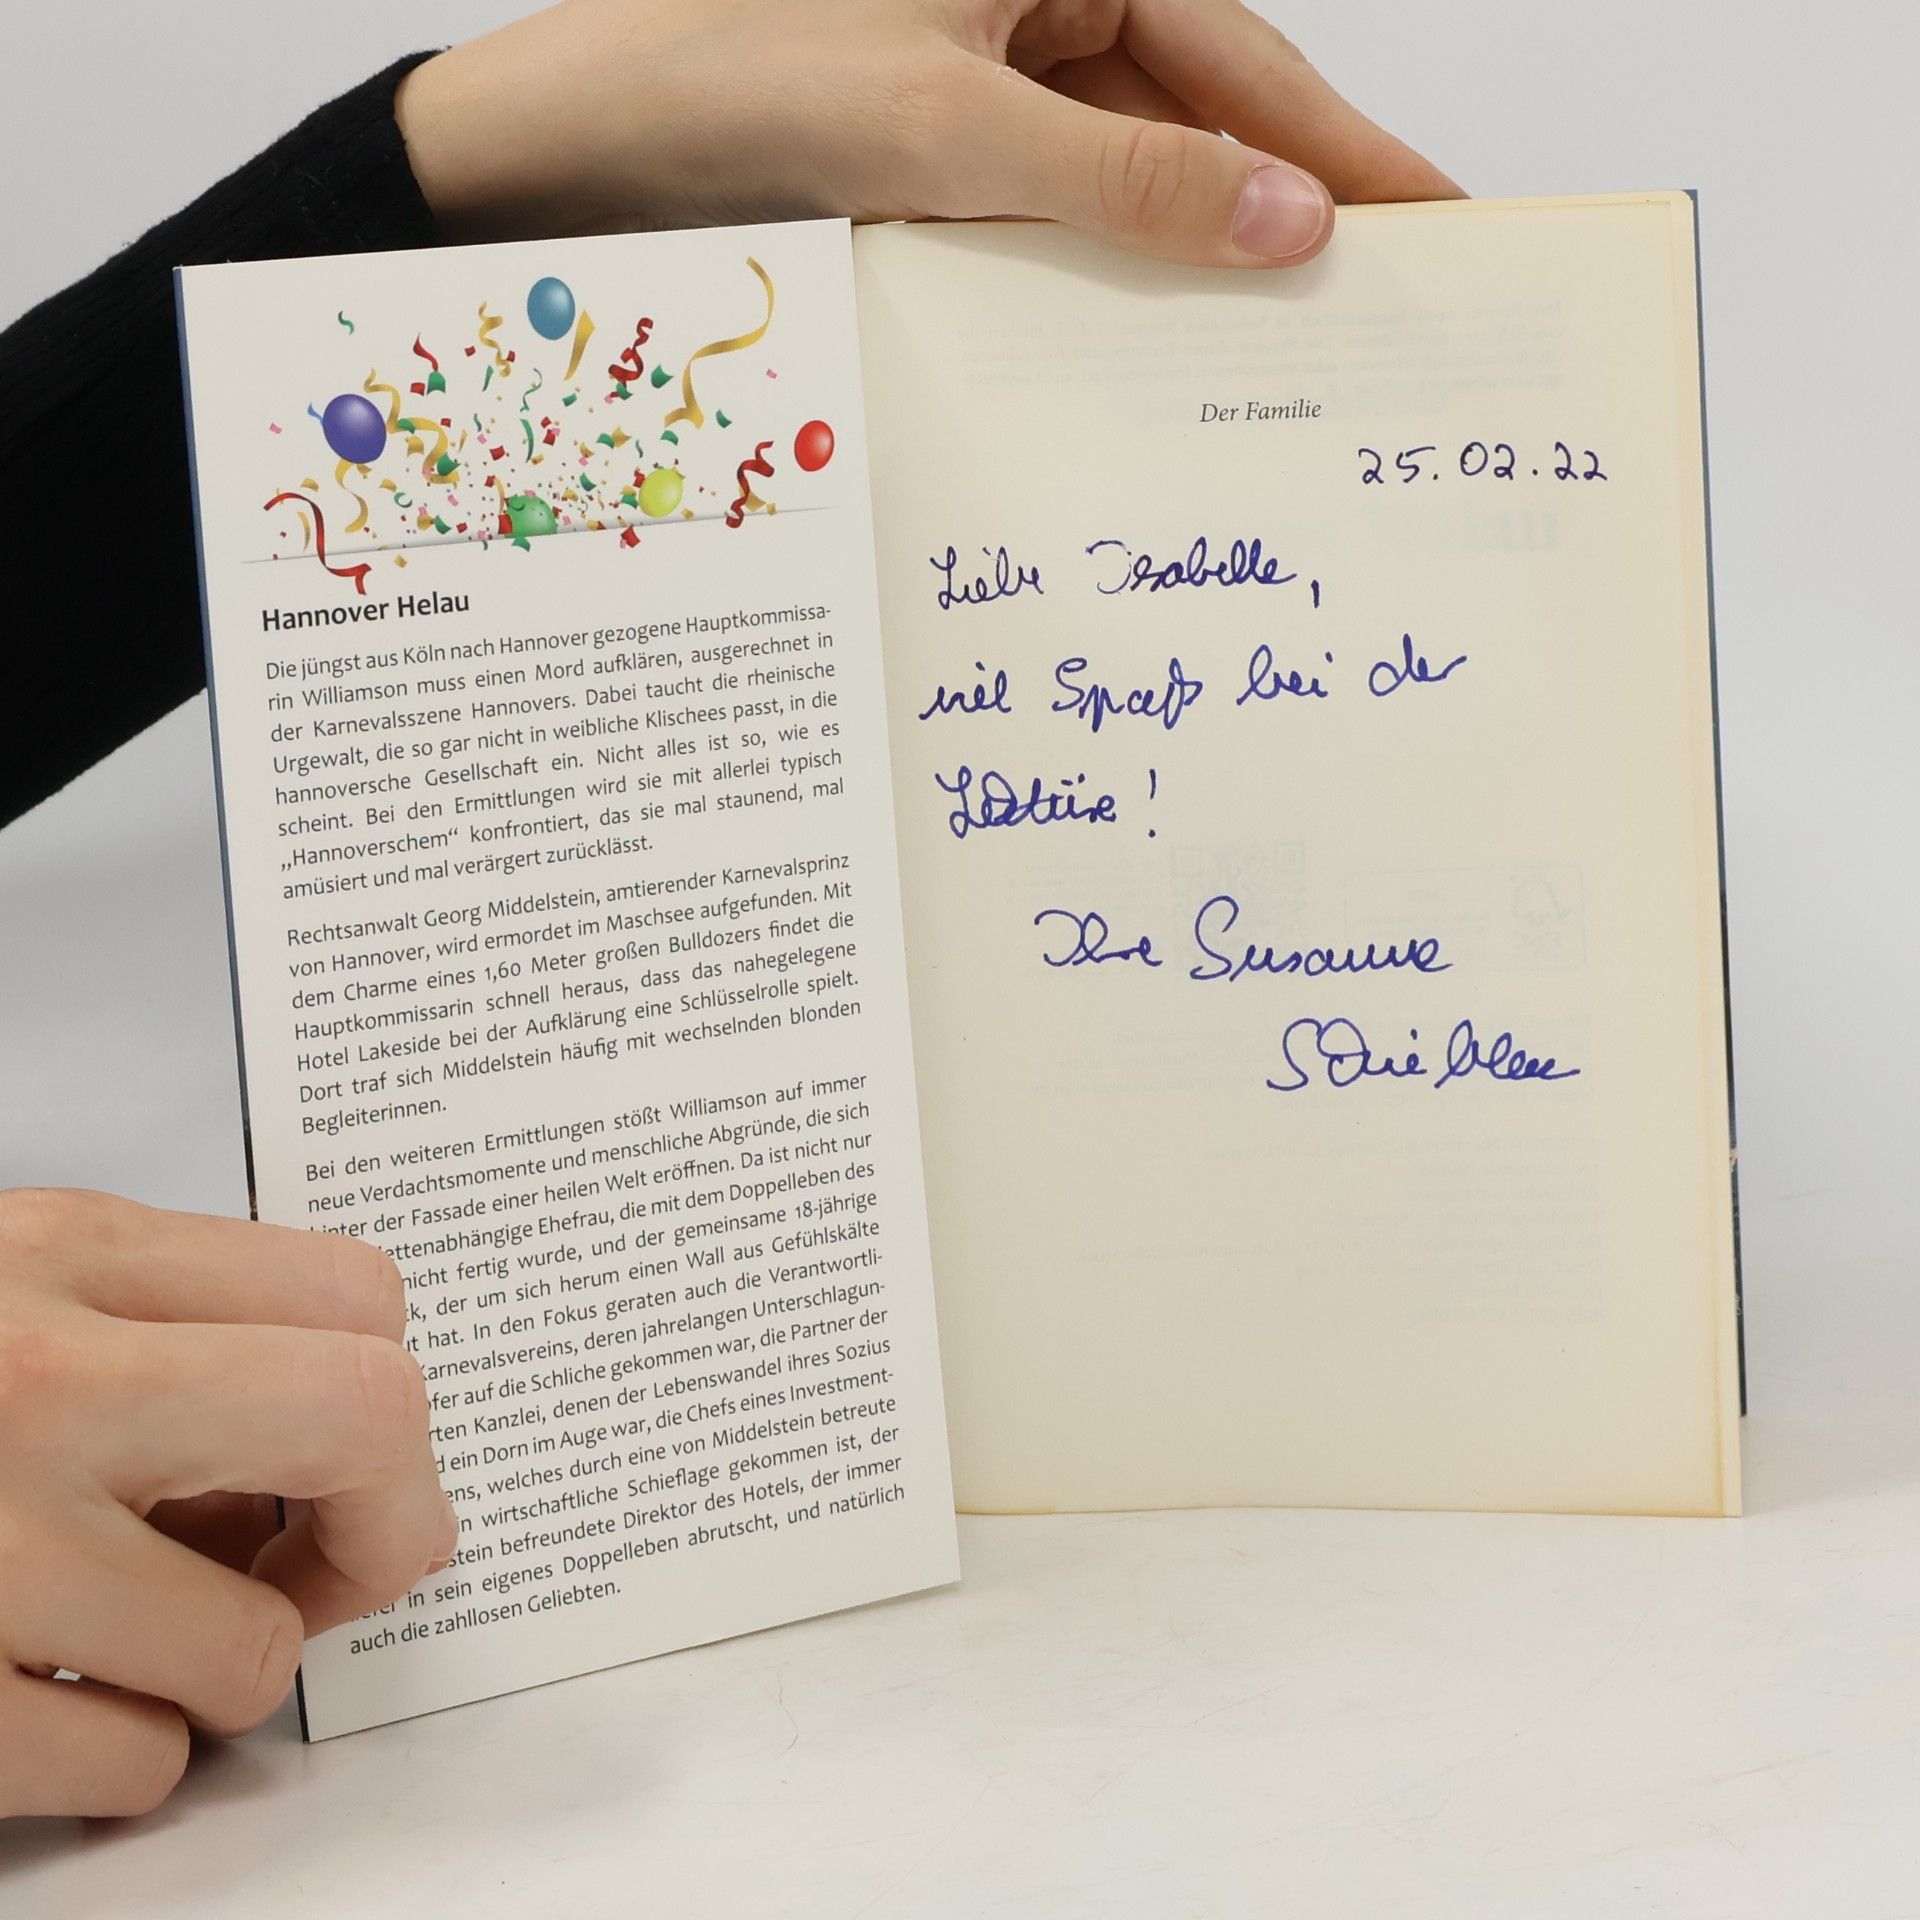 Hannover Helau
Die jüngst aus Köln nach Hannover gezogene Hauptkommissa-
rin Williamson muss einen Mord aufklären, ausgerechnet in
der Karnevalsszene Hannovers. Dabei taucht die rheinische
Urgewalt, die so gar nicht in weibliche Klischees passt, in die
hannoversche Gesellschaft ein. Nicht alles ist so, wie es
scheint. Bei den Ermittlungen wird sie mit allerlei typisch
„Hannoverschem“ konfrontiert, das sie mal staunend, mal
amüsiert und mal verärgert zurücklässt.
Rechtsanwalt Georg Middelstein, amtierender Karnevalsprinz
von Hannover, wird ermordet im Maschsee aufgefunden. Mit
dem Charme eines 1,60 Meter großen Bulldozers findet die
Hauptkommissarin schnell heraus, dass das nahegelegene
Hotel Lakeside bei der Aufklärung eine Schlüsselrolle spielt.
Dort traf sich Middelstein häufig mit wechselnden blonden
Begleiterinnen.
Bei den weiteren Ermittlungen stößt Williamson auf immer
neue Verdachtsmomente und menschliche Abgründe, die sich
hinter der Fassade einer heilen Welt eröffnen. Da ist nicht nur
ettenabhängige Ehefrau, die mit dem Doppelleben des
nicht fertig wurde, und der gemeinsame 18-jährige
k, der um sich herum einen Wall aus Gefühlskälte
ut hat. In den Fokus geraten auch die Verantwortli-
Karnevalsvereins, deren jahrelangen Unterschlagun-
fer auf die Schliche gekommen war, die Partner der
rten Kanzlei, denen der Lebenswandel ihres Sozius
d ein Dorn im Auge war, die Chefs eines Investment-
ens, welches durch eine von Middelstein betreute
in wirtschaftliche Schieflage gekommen ist, der
stein befreundete Direktor des Hotels, der immer
in sein eigenes Doppelleben abrutscht, und natürlich
auch die zahllosen Geliebten.
Der Familie
25.02.22
Liebe Isabelle,
viel Spaß bei der
Lektüre!
Ihre Susanne